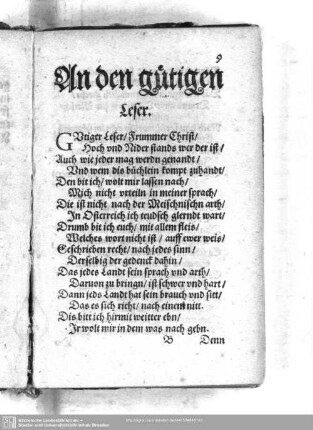 9
An den gütigen
Leser.
GVtiger Leser/ Frummer Christ/
Hoch vnd Nider stands wer der ist/
Auch wie jeder mag werdn genandt/
Vnd wem dis büchlein kompt zuhandt/
Den bit ich/ wolt mir lassen nach/
Mich nicht vrteiln in meiner sprach/
Die ist nicht nach der Meischnischn arth/
In Osterreich ich teudsch glerndt wart/
Drumb bit ich euch/ mit allem fleis/
Welches wort nicht ist / auff ewer weis/
Geschrieben recht/ nach jedes sinn/
Derselbig der gedenck dahin/
Das jedes Landt sein sprach vnd arth/
Daruon zu bringn/ ist schwer vnd hart/
Dann jeds Landt hat sein brauch vnd sitt/
Das es sich richt/ nach einem nitt.
Dis bitt ich hirmit weitter ebn/
Ir wolt mir in dem was nach gebn.
B Denn